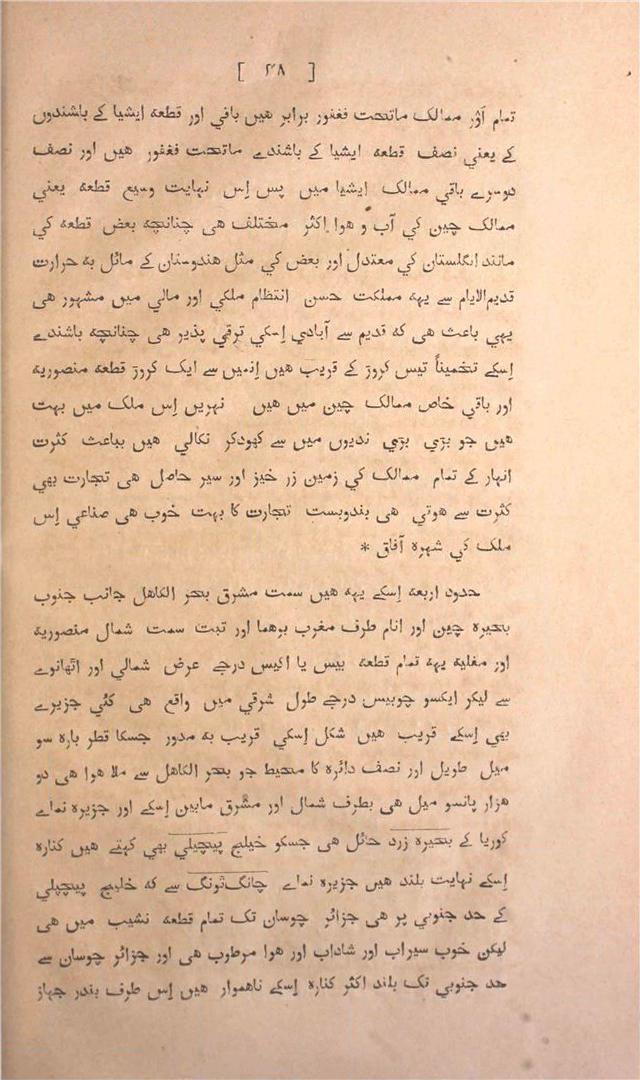 [ ۴۸ ]
تمام اَوْر ممالک ماتحت فغفور برابر هیں باقي اور قطعہ ایشیا کے باشندوں
کے یعني نصف قطعہ ایشیا کے باشندے ماتحت فغفور هیں اور نصف
دوسرے باقي ممالک ایشیا میں پس اِس نهایت وسیع قطعہ یعني
ممالک چین کي آب و هوا اکثر مختلف هی چنانچہ بعض قطعہ کي
مانند انگلستان کي معتدل اور بعض کي مثل هندوستان کے مائل بہ حرارت
قدیم‌الایام سے یہہ مملکت حسن انتظام ملکي اور مالي میں مشهور هی
یہي باعث هی کہ قدیم سے آبادي اِسکي ترقي پذیر هی چنانچہ باشندے
اِسکے تخمیناً تیس کروڑ کے قریب هیں اِنمیں سے ایک کروڑ قطعہ منصوریہ
اور باقي خاص ممالک چین میں هیں نہریں اِس ملک میں بہت
هیں جو بڑي بڑي ندیوں میں سے کھودکر نکالي هیں بباعث کثرت
انہار کے تمام ممالک کي زمین زر خیز اور سیر حاصل هی تجارت بهي
کثرت سے هوتي هی بندوبست تجارت کا بہت خوب هی صناعي اِس
ملک کي شہرہ آفاق *
حدود اربعہ اِسکے یہہ هیں سمت مشرق بحر الکاهل جانب جنوب
بحیرہ چین اور انام طرف مغرب برهما اور تبت سمت شمال منصوریہ
اور مغلیہ یہہ تمام قطعہ بیس یا اکیس درجے عرض شمالي اور اٹھانوے
سے لیکر ایکسو چوبیس درجے طول شرقي میں واقع هی کئي جزیرے
بهي اِسکے قریب هیں شکل اِسکي قریب بہ مدور جسکا قطر بارہ سو
میل طویل اور نصف دائرہ کا محیط جو بحر الکاهل سے ملا هوا هی دو
هزار پانسو میل هی بطرف شمال اور مشرق مابین اِسکے اور جزیرہ نماے
کوریا کے بحیرہ زرد حائل هی جسکو خیلیج پیچیلي بهي کہتے هیں کنارہ
اِسکے نهایت بلند هیں جزیرہ نماے چانگ‌ٹونگ سے کہ خلیج پیچیلي
کے حد جنوبي پر هی جزائر چوسان تک تمام قطعہ نشیب میں هی
لیکن خوب سیراب اور شاداب اور هوا مرطوب هی اور جزائر چوسان سے
حد جنوبي تک بلند اکثر کنارہ اِسکے ناهموار هیں اِس طرف بندر جهاز